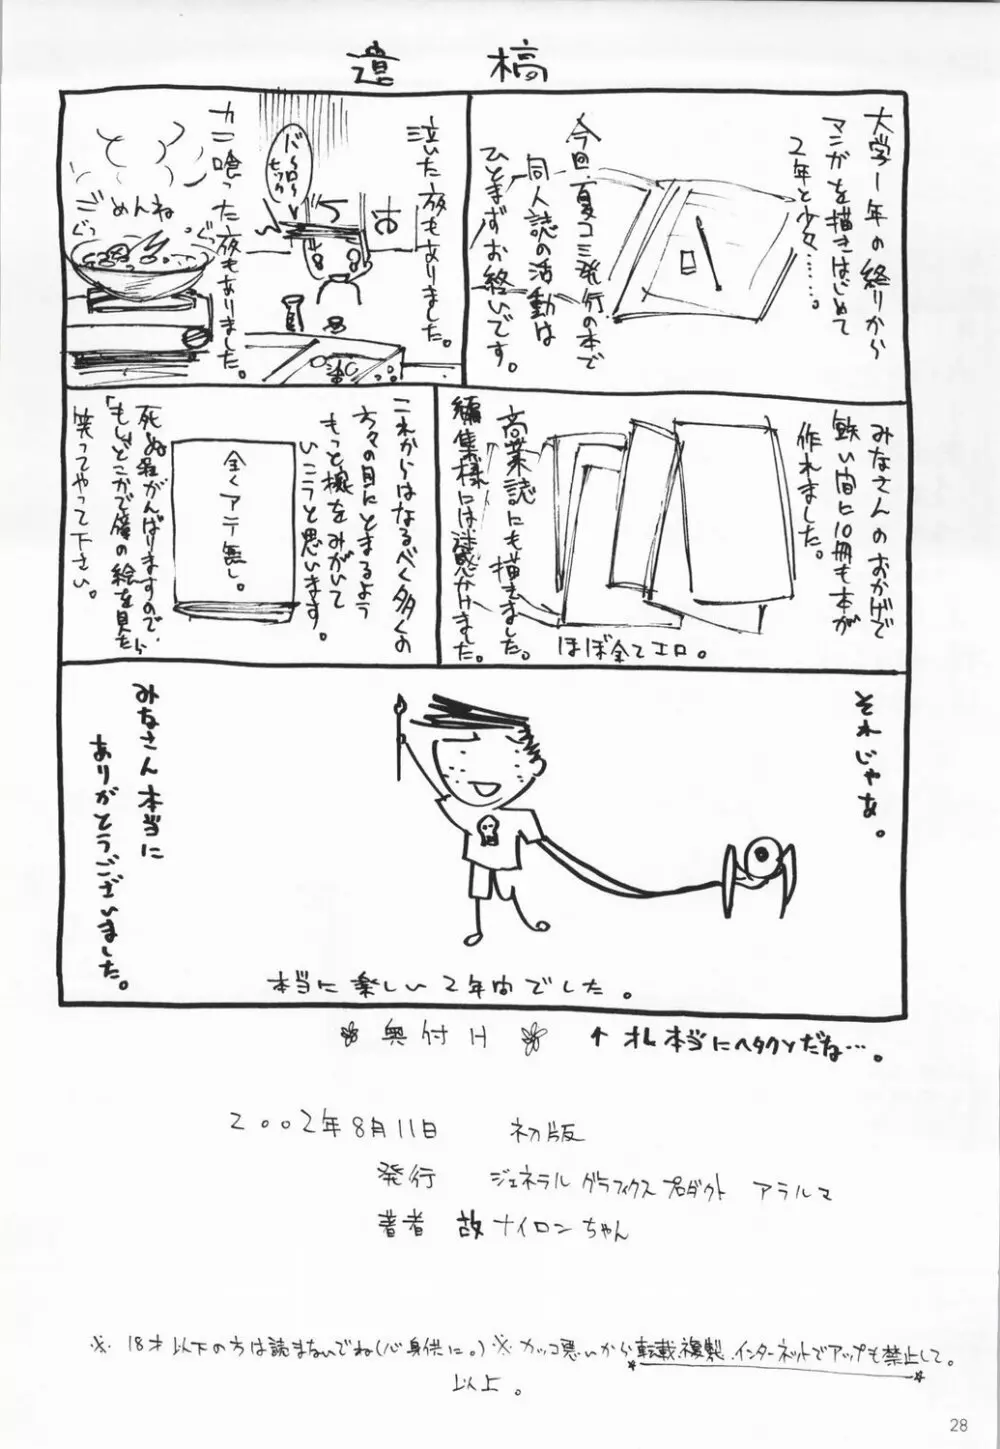 遺稿
大学1年の終りから
マンガを描きはじめて
2年と少々……。
今回、夏コミ発行の本で
同人誌の活動は
ひとまずお終いです。
泣いた夜もありました。
カニ喰った夜もありました。
ごめんね
ぐっ
ぐっ
みなさんのおかげで
短い間に10冊も本が
作れました。
商業誌にも描きました。
編集様には迷惑かけました。
ほぼ全てエロ。
これからはなるべく多くの
方々の目にとまるよう
もっと様をみがいて
いこうと思います。
全くアテ無し。
死ぬ程がんばりますので、
「もしどこかで僕の絵を見たら
笑ってやって下さい。
それじゃあ。
みなさん本当に
ありがとうございました。
本当に楽しい2年間でした。
奥付け
↑オレ本当にヘタクソだね…。
2002年8月11日 初版
発行 ジェネラルグラフィクスプロダクト アラルマ
著者 故ナイロンちゃん
※ 18才以下の方は読まないでね(心身供に。) ※ カッコ悪いから転載、複製、インターネットでアップも禁止して。
以上。
28